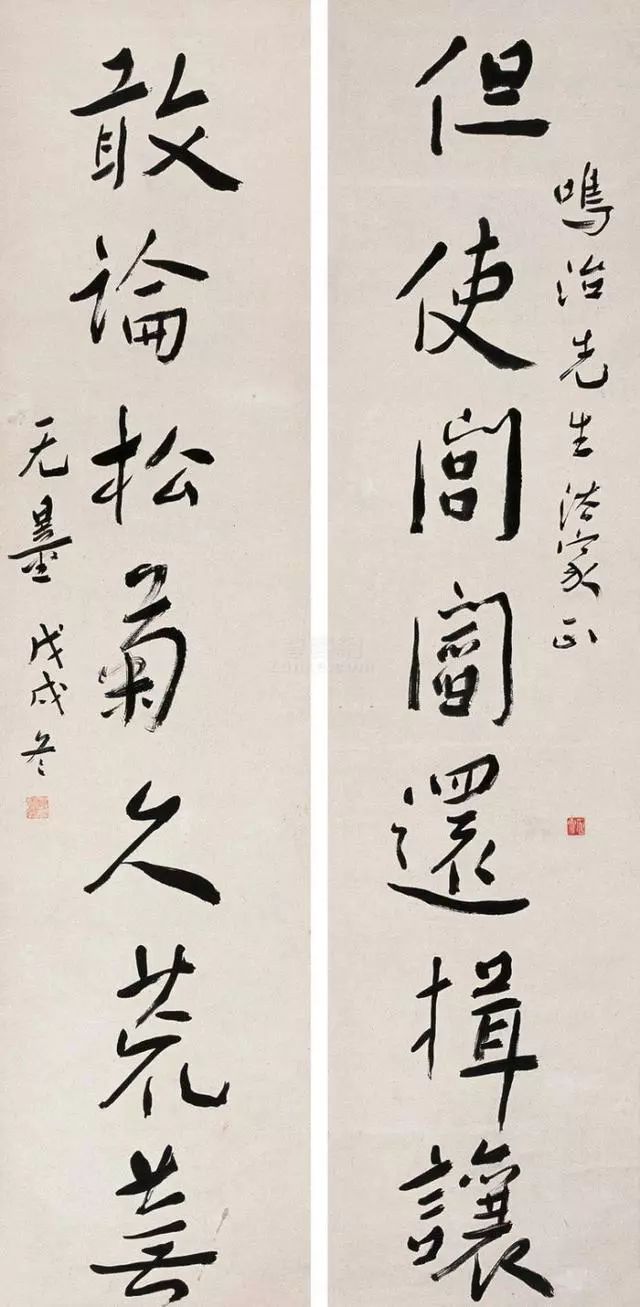 鳴治先生法家正
但使閭閻還揖讓
敢論松菊久荒蕪
无量 戊戌冬